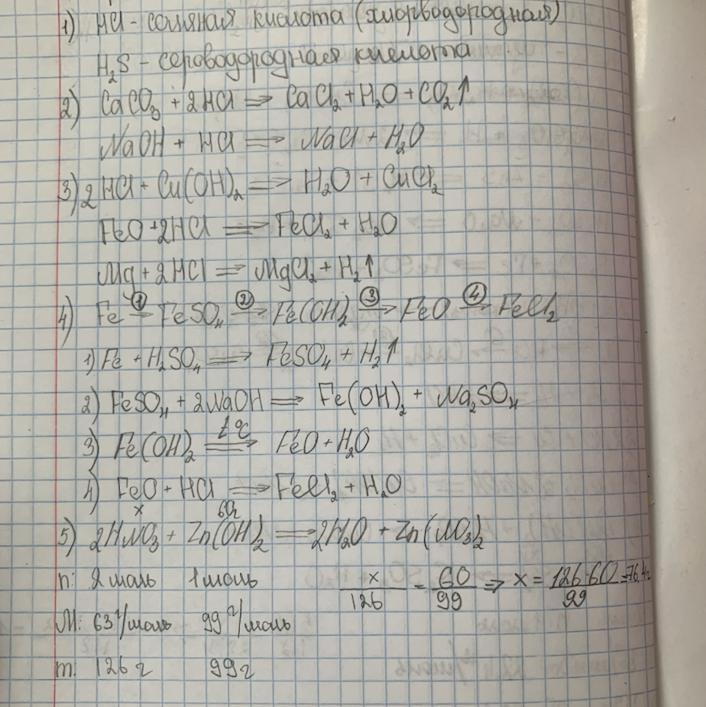 1) HCl - соляная кислота (хлорводородная)
H₂S - сероводородная кислота
2) CaCO₃ + 2HCl ⟹ CaCl₂ + H₂O + CO₂↑
NaOH + HCl ⟹ NaCl + H₂O
3) 2HCl + Cu(OH)₂ ⟹ H₂O + CuCl₂
FeO + 2HCl ⟹ FeCl₂ + H₂O
Mg + 2HCl ⟹ MgCl₂ + H₂↑
4) Fe ①⟹ FeSO₄ ②⟹ Fe(OH)₂ ③⟹ FeO ④⟹ FeCl₂
1) Fe + H₂SO₄ ⟹ FeSO₄ + H₂↑
2) FeSO₄ + 2NaOH ⟹ Fe(OH)₂ + Na₂SO₄
3) Fe(OH)₂ t°C⟹ FeO + H₂O
4) FeO + HCl ⟹ FeCl₂ + H₂O
x 60г
5) 2HNO₃ + Zn(OH)₂ ⟹ 2H₂O + Zn(NO₃)₂
n: 2 моль 1 моль x/126 = 60/99 ⇒ x = 126·60/99 = 76,4г
M: 63 г/моль 99 г/моль
m: 126 г 99 г